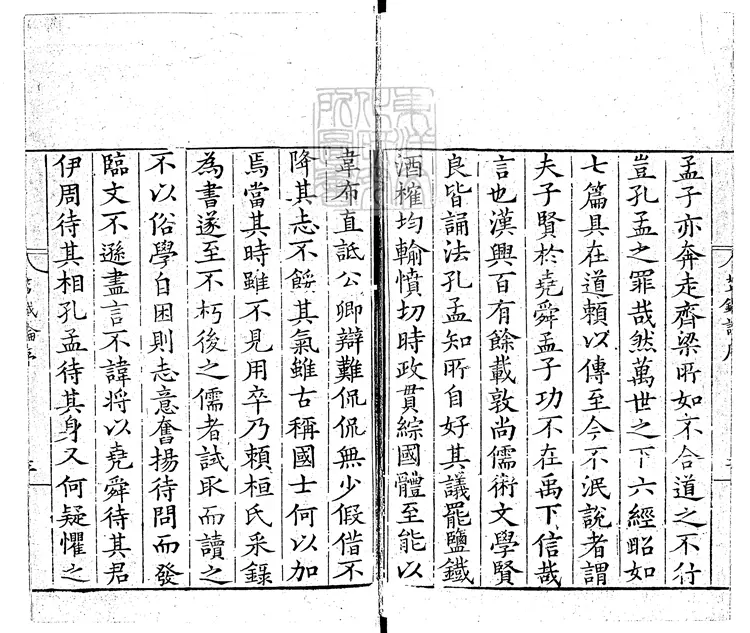 孟子亦奔走齊梁所如不合道之不行
豈孔孟之罪哉然萬世之下六經昭如
七篇具在道賴以傳至今不泯說者謂
夫子賢於堯舜孟子功不在禹下信哉
言也漢興百有餘載敦尚儒術文學賢
良皆誦法孔孟知所自好其議罷鹽鐵
酒榷均輸憤切時政貫綜國體至能以
韋布直詆公卿辯難侃侃無少假借不
降其志不餒其氣雖古稱國士何以加
焉當其時雖不見用卒乃賴桓氏采錄
為書遂至不朽後之儒者試取而讀之
不以俗學自困則志意奮揚待問而發
臨文不遜盡言不諱將以堯舜待其君
伊周待其相孔孟待其身又何疑懼之